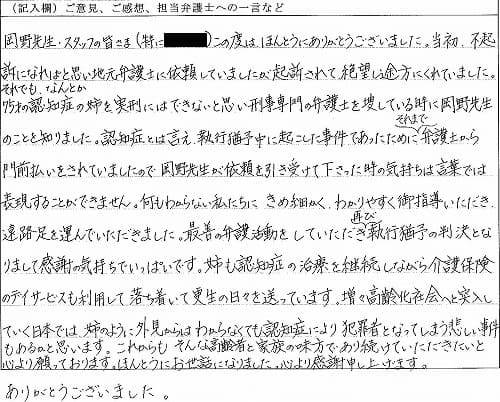 (記入欄) ご意見、ご感想、担当弁護士への一言など
岡野先生・スタッフの皆さま(特に)この度は、ほんとうにありがとうございました。当初、不起
訴になればと思い地元弁護士に依頼していましたが起訴されて絶望し途方にくれていました。
それでも、なんとか
75才の認知症の姉を実刑にはできないと思い刑事専門の弁護士を捜している時に岡野先生
のことを知りました。認知症とは言え、執行猶予中に起こした事件であったためにそれまで弁護士から
門前払いをされていましたので岡野先生が依頼を引き受けて下さった時の気持ちは言葉では
表現することができません。何もわからない私たちにきめ細かく、わかりやすく御指導いただき、
遠路足を運んでいただきました。最善の弁護活動をしていただき再び執行猶予の判決とな
りまして感謝の気持ちでいっぱいです。姉も認知症の治療を継続しながら介護保険
のデイサービスも利用して落ち着いて更生の日々を送っています。増々高齢化社会へと突入し
ていく日本では、姉のように外見からはわからなくても認知症により犯罪者となってしまう悲しい事件
もあるかと思います。これからもそんな高齢者と家族の味方であり続けていただきたいと
心より願っております。ほんとうにお世話になりました。心より感謝申し上げます。
ありがとうございました。